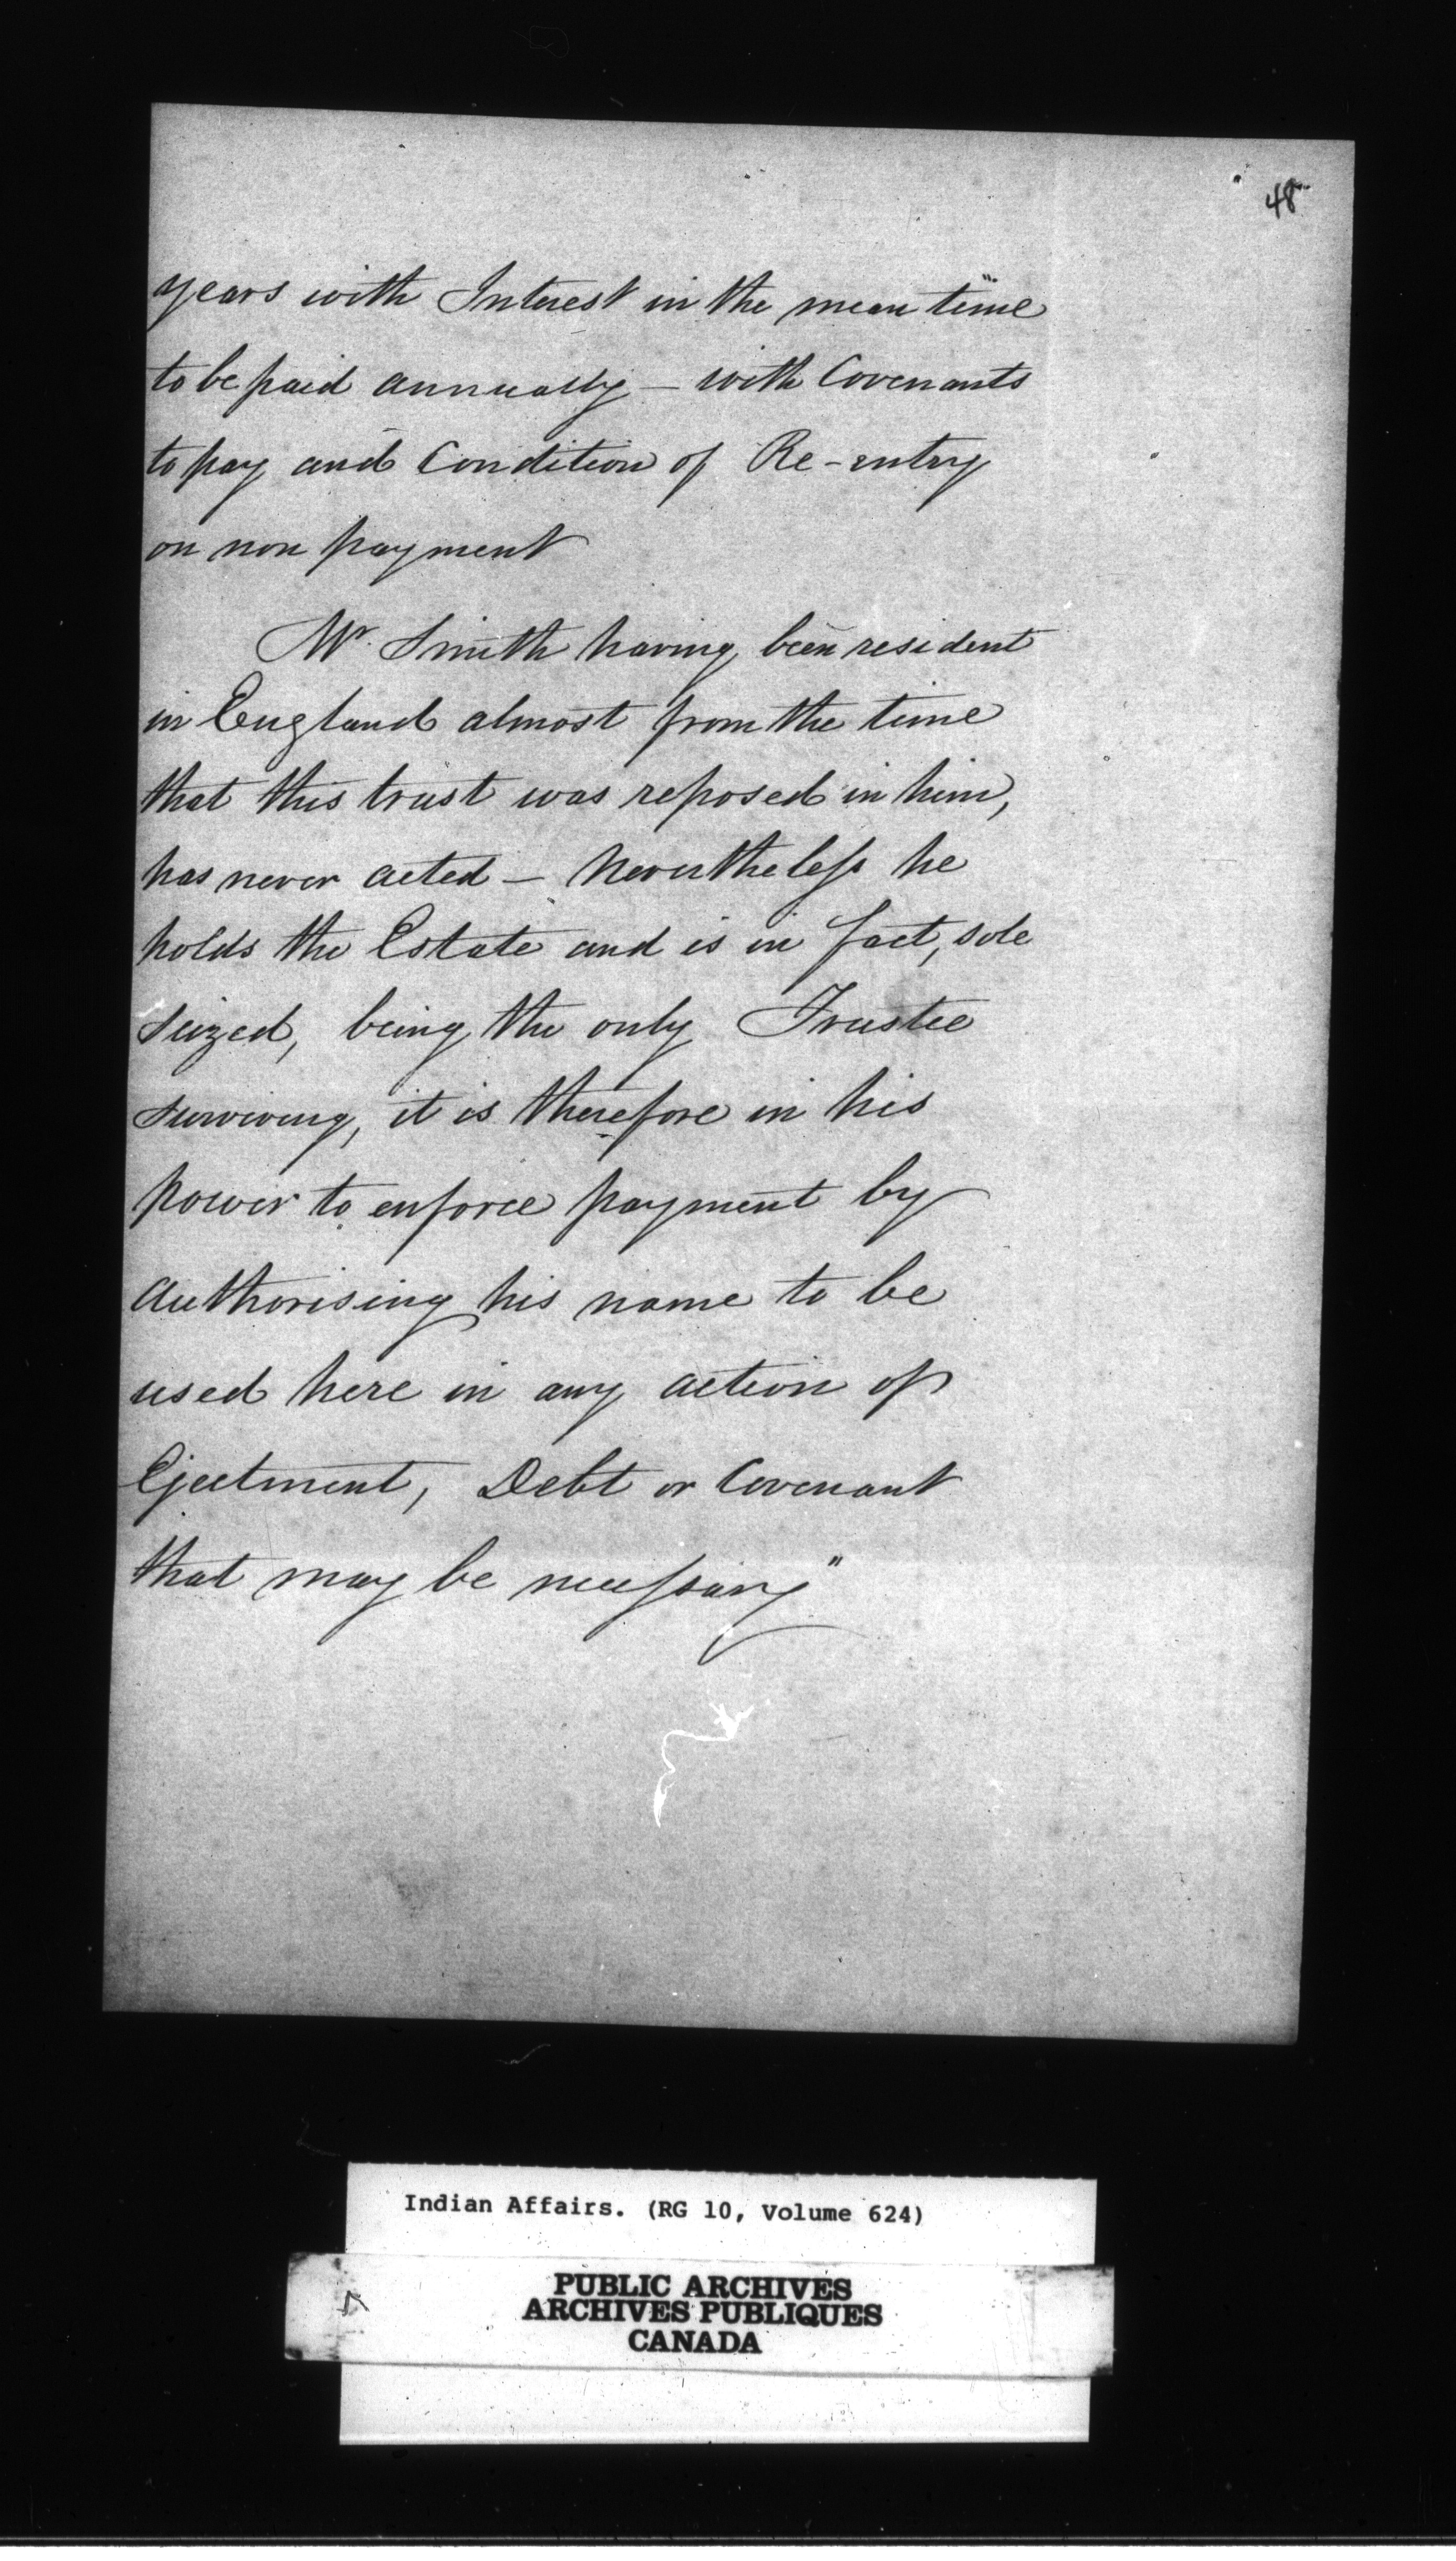 48
years with Interest in the mean time
to be paid annually – with Covenants
to pay and Condition of Re-entry
on non payment
Mr. Smith having been resident
in England almost from the time
that this trust was reposed in him,
has never acted – Nevertheless he
holds the Estate and is in fact, sole
seized, being the only Trustee
surviving, it is therefore in his
power to enforce payment by
authorising his name to be
used here in any action of
Ejectment, Debt or Covenant
that may be necessary"
Indian Affairs. (RG 10, Volume 624)
PUBLIC ARCHIVES
ARCHIVES PUBLIQUES
CANADA